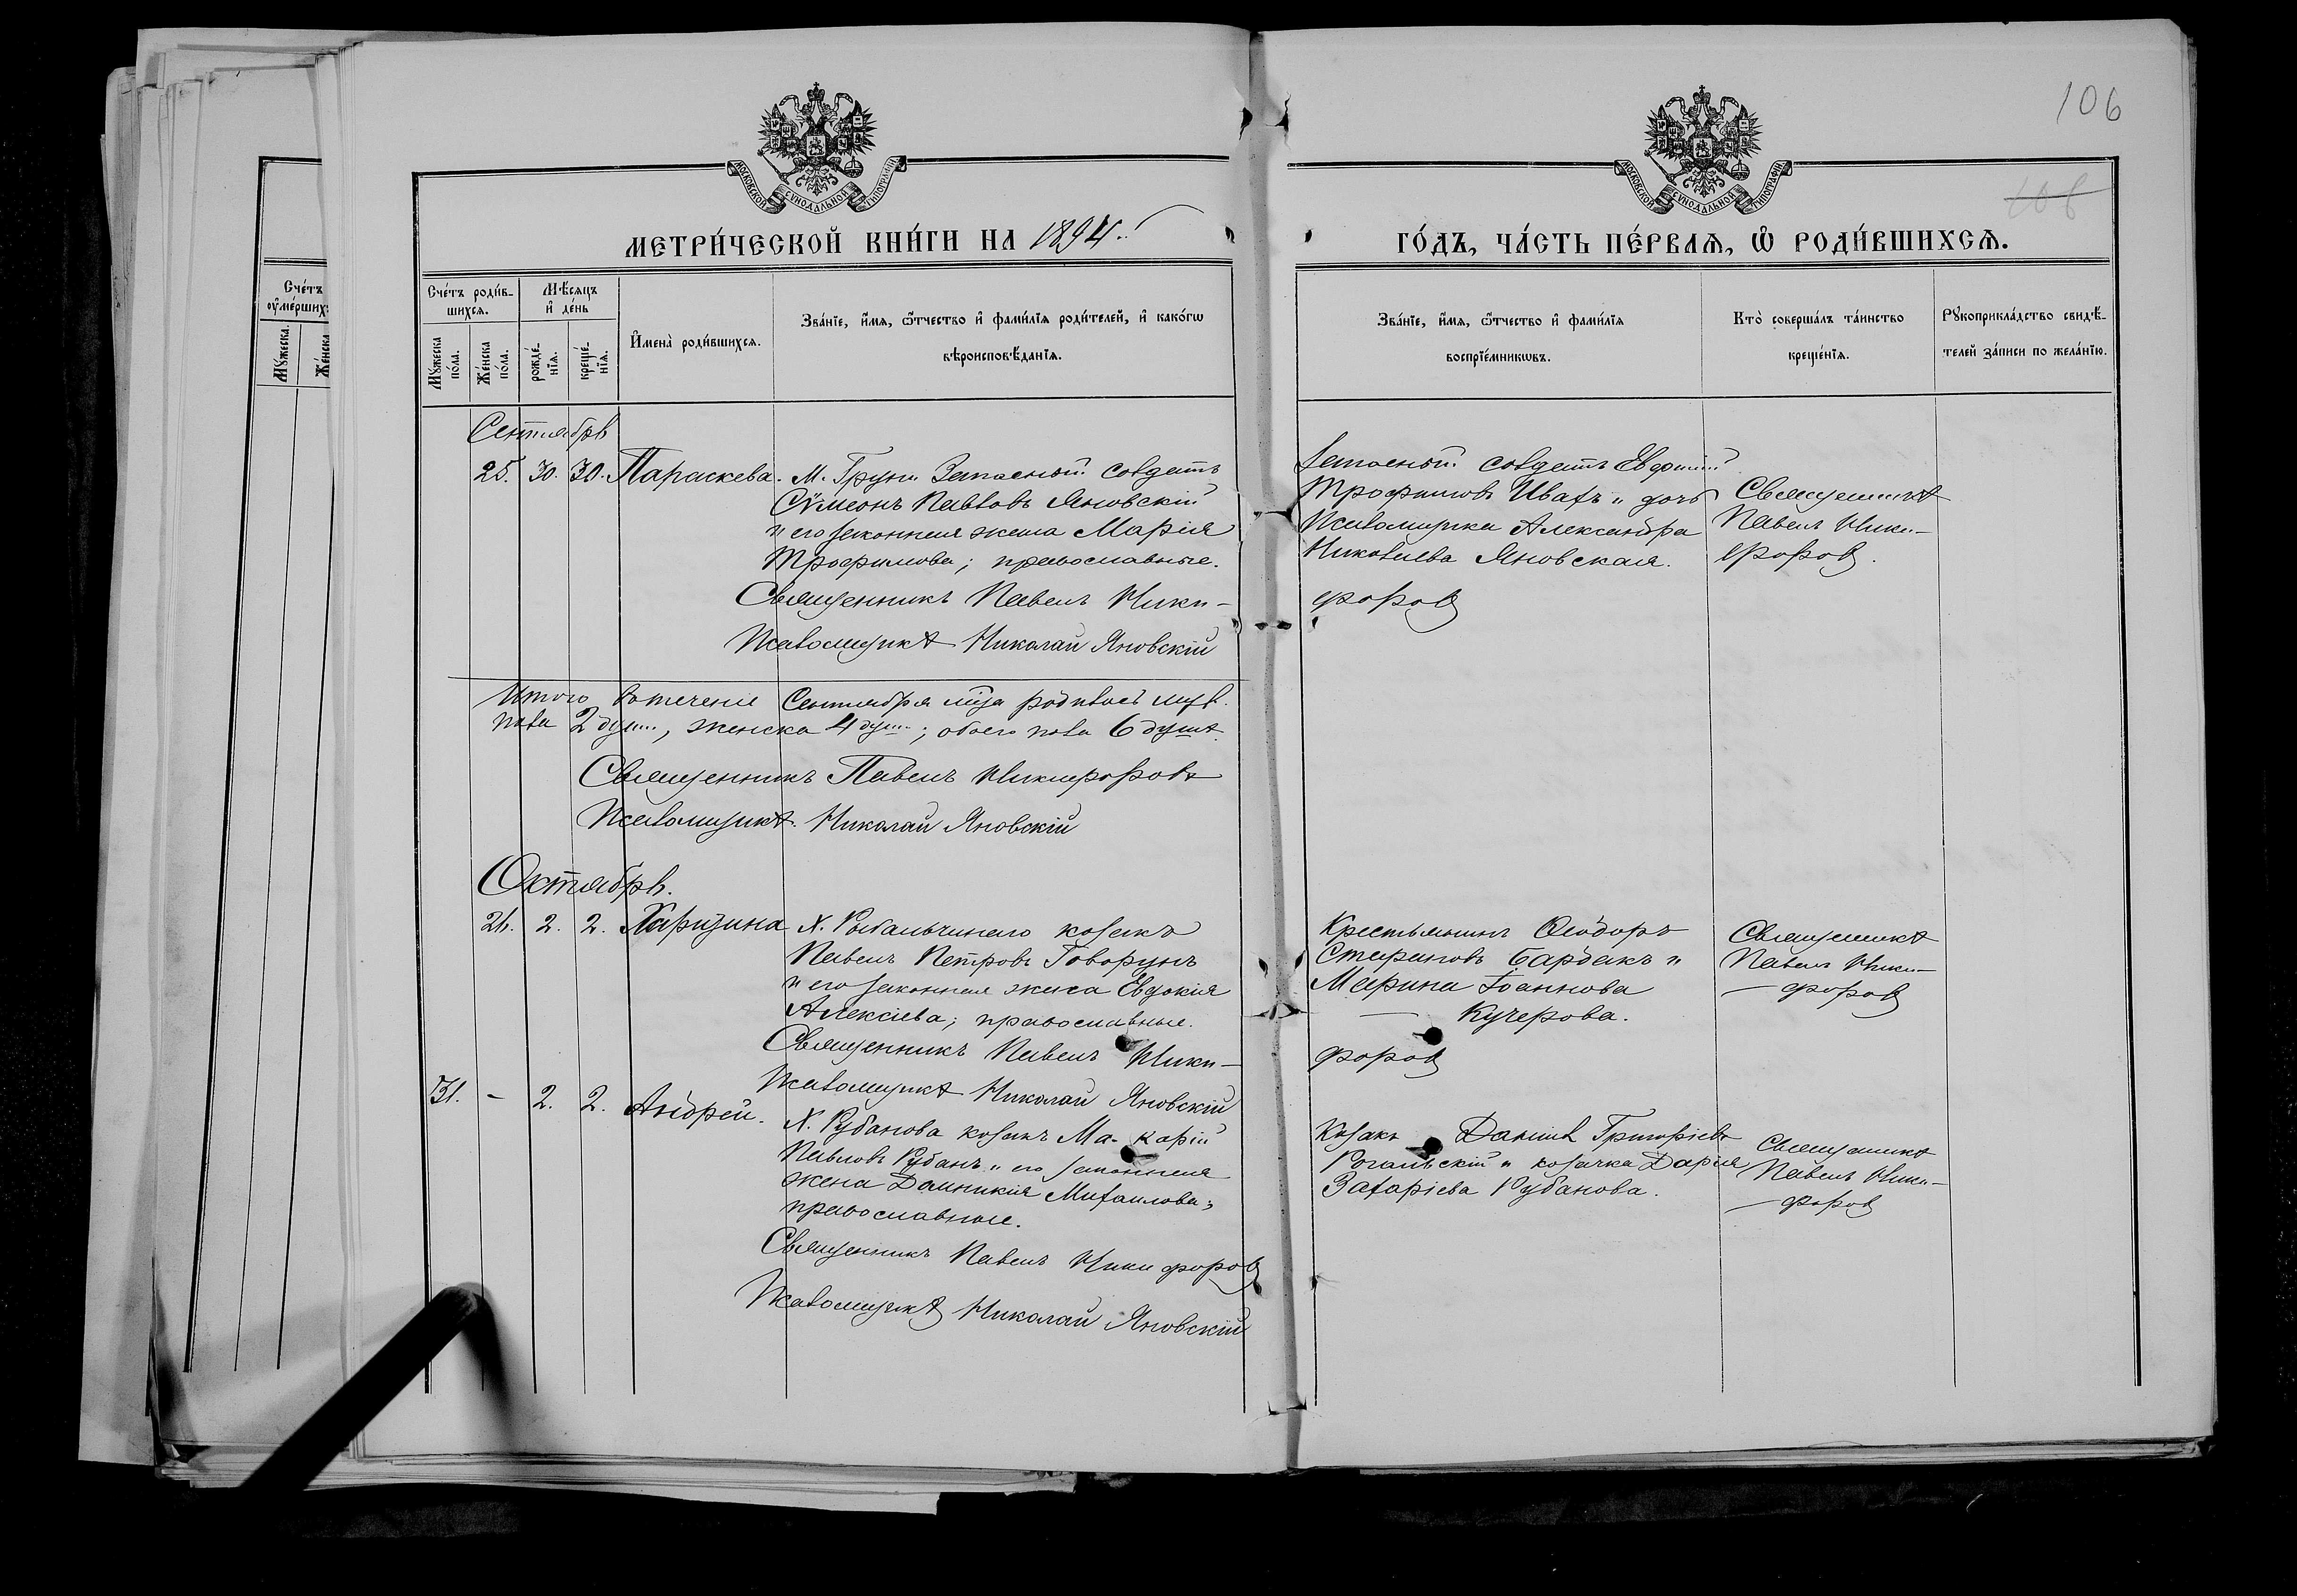 106
108
МОСКОВСКОЙ СУНОДАЛЬНОЙ ТИПОГРАФІИ
МОСКОВСКОЙ СУНОДАЛЬНОЙ ТИПОГРАФІИ
МЕТРИ́ЧЕСКОЙ КНИ́ГИ НА 1894.
ГО́ДЪ, ЧА́СТЬ ПЕ́РВАЯ, Ѡ РОДИ́ВШИХСЯ.
Сче́тъ оумершихъ
Мꙋжеска
Же́нска
Сче́тъ роди́вшихся.
Мꙋ́жеска по́ла.
Же́нска по́ла.
Мѣ́сяцъ и҆ де́нь
рожде́нїя.
креще́нїя.
И҆мена̀ роди́вшихся.
Зва́нїе, и҆́мя, ѻ҆́тчество и҆ фами́лїя роди́телей, и҆ како́гѡ
вѣроисповѣ́данїя.
Зва́нїе, и҆́мя, ѻ҆́тчество и҆ фами́лїя
воспрїе́мникѡвъ.
Кто̀ соверша́лъ та́инство
креще́нїя.
Рꙋкоприкла́дство свидѣ́-
телей за́писи по жела́нїю.
Сентябрь
25. 30. 30. Параскева. М. Груни Запасный солдатъ
Сѵмеонъ Павловъ Яновскій
и его законная жена Марія
Трофимова; православные.
Священникъ Павелъ Ники-
Псаломщикъ Николай Яновскій
Запасный солдатъ Евфимій
Трофимовъ Ивахъ и дочь
Псаломщика Александра
Николаева Яновская.
форовъ
Священникъ
Павелъ Ники-
форовъ.
Итого въ теченіе Сентября м-ца родилось муж.
пола 2 душ., женска 4 душ.; обоего пола 6 душъ.
Священникъ Павелъ Никифоровъ
Псаломщикъ. Николай Яновскій
Октябрь.
26. 2. 2. Харитина Х. Рыбальчинаго козакъ
Павелъ Петровъ Говорунъ
и его законная жена Евдокія
Алексіева; православные.
Священникъ Павелъ Ники-
Псаломщикъ Николай Яновскій
Крестьянинъ Ѳеодоръ
Стефановъ Бардакъ и
Марина Іоаннова
Кучерова.
форовъ
Священникъ
Павелъ Ники-
форовъ
31. - 2. 2. Андрей. Х. Рубанова козакъ Макарій
Павловъ Рубанъ и его законная
жена Домникія Михаилова;
православные.
Священникъ Павелъ Никифоровъ
Псаломщикъ Николай Яновскій
Козакъ Даніилъ Григоріевъ
Рогальскій и козачка Дарія
Захаріева Рубанова.
Священникъ
Павелъ Ники-
форовъ